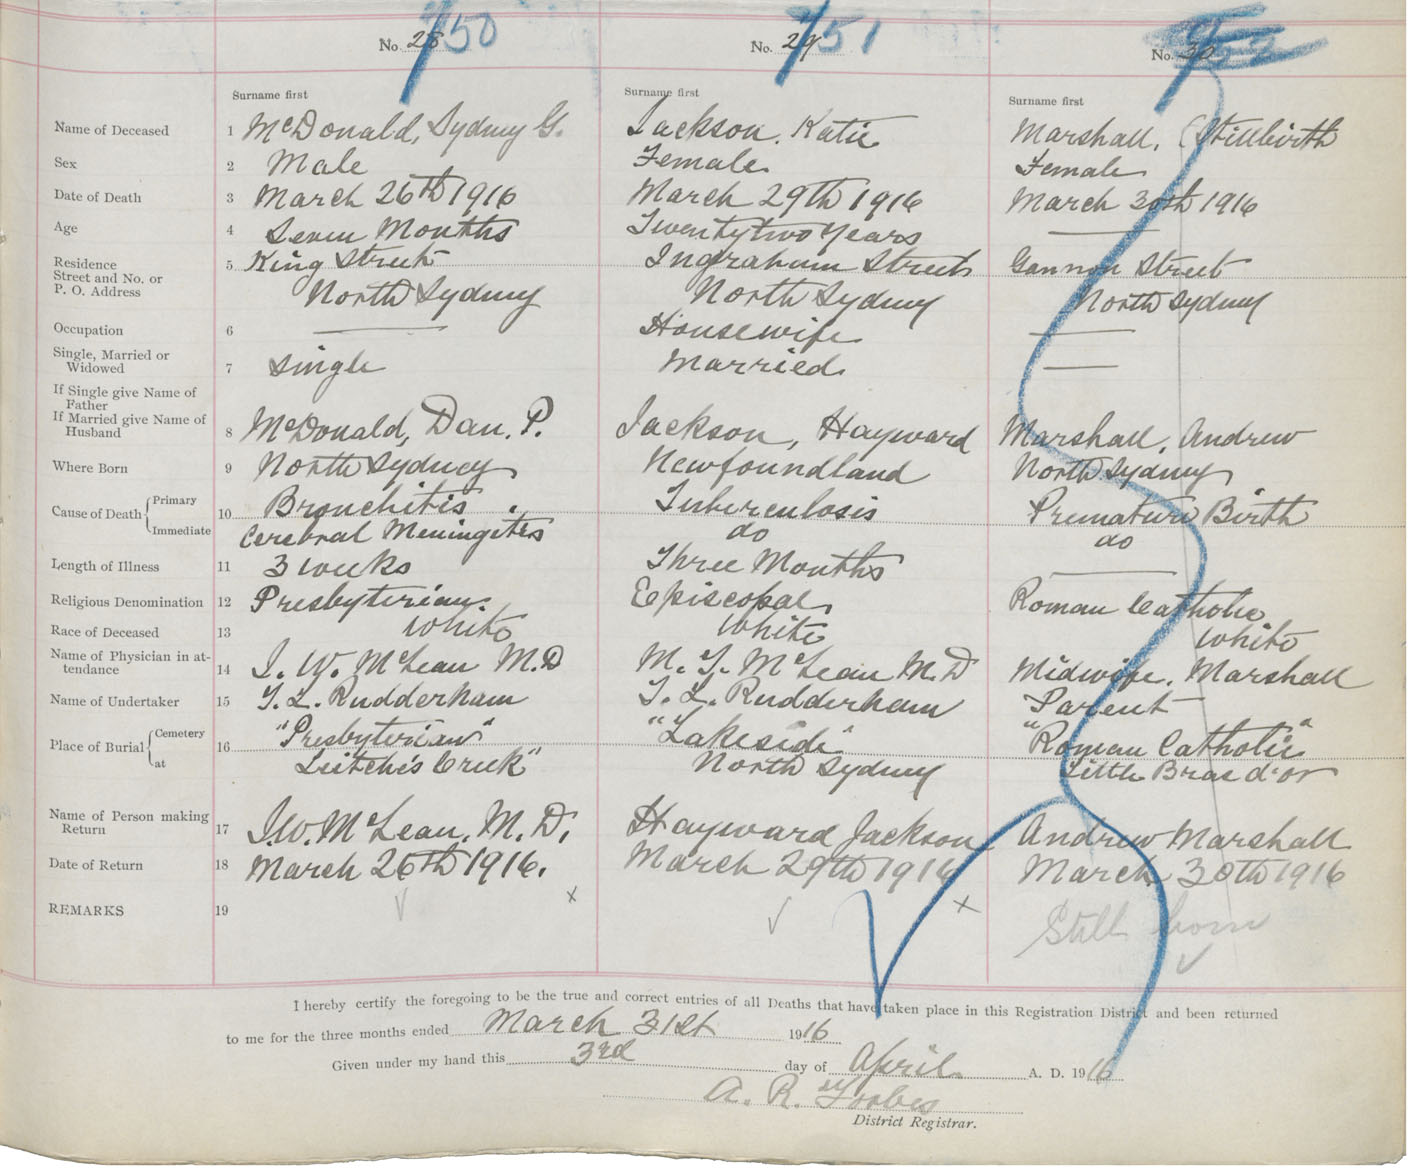 750 751
No. 28 No. 29 No. 30
Surname first Surname first Surname first
Name of Deceased 1 McDonald, Sydney G. Jackson, Katie Marshall, (Stillbirth
Sex 2 Male Female Female
Date of Death 3 March 26th 1916 March 29th 1916 March 30th 1916
Age 4 Seven Months Twentytwo Years
Residence 5 King Street Ingraham Street Gannon Street
Street and No. or
P. O. Address North Sydney North Sydney North Sydney
Occupation 6 Housewife
Single, Married or
Widowed 7 Single Married
If Single give Name of
Father
If Married give Name of
Husband 8 McDonald, Dan. P. Jackson, Hayward Marshall, Andrew
Where Born 9 North Sydney Newfoundland North Sydney
Cause of Death Primary 10 Bronchitis Tuberculosis Premature Birth
Immediate Cerebral Meningitis do do
Length of Illness 11 3 weeks Three Months
Religious Denomination 12 Presbyterian. Episcopal Roman Catholic
Race of Deceased 13 White White White
Name of Physician in at-
tendance 14 J. W. McLean M.D M. T. McLean M.D Midwife. Marshall
Name of Undertaker 15 T. L. Rudderham T. L. Rudderham Parent
Place of Burial Cemetery 16 "Presbyterian" "Lakeside" "Roman Catholic"
at Leitche's Creek" North Sydney Little Bras d'or
Name of Person making
Return 17 J.W. McLean, M.D. Hayward Jackson Andrew Marshall
Date of Return 18 March 26th 1916. March 29th 1916 March 30th 1916
REMARKS 19 Still born
I hereby certify the foregoing to be the true and correct entries of all Deaths that have taken place in this Registration District and been returned
to me for the three months ended March 31st 1916
Given under my hand this 3rd day of April A. D. 1916
A. R. Forbes
District Registrar.